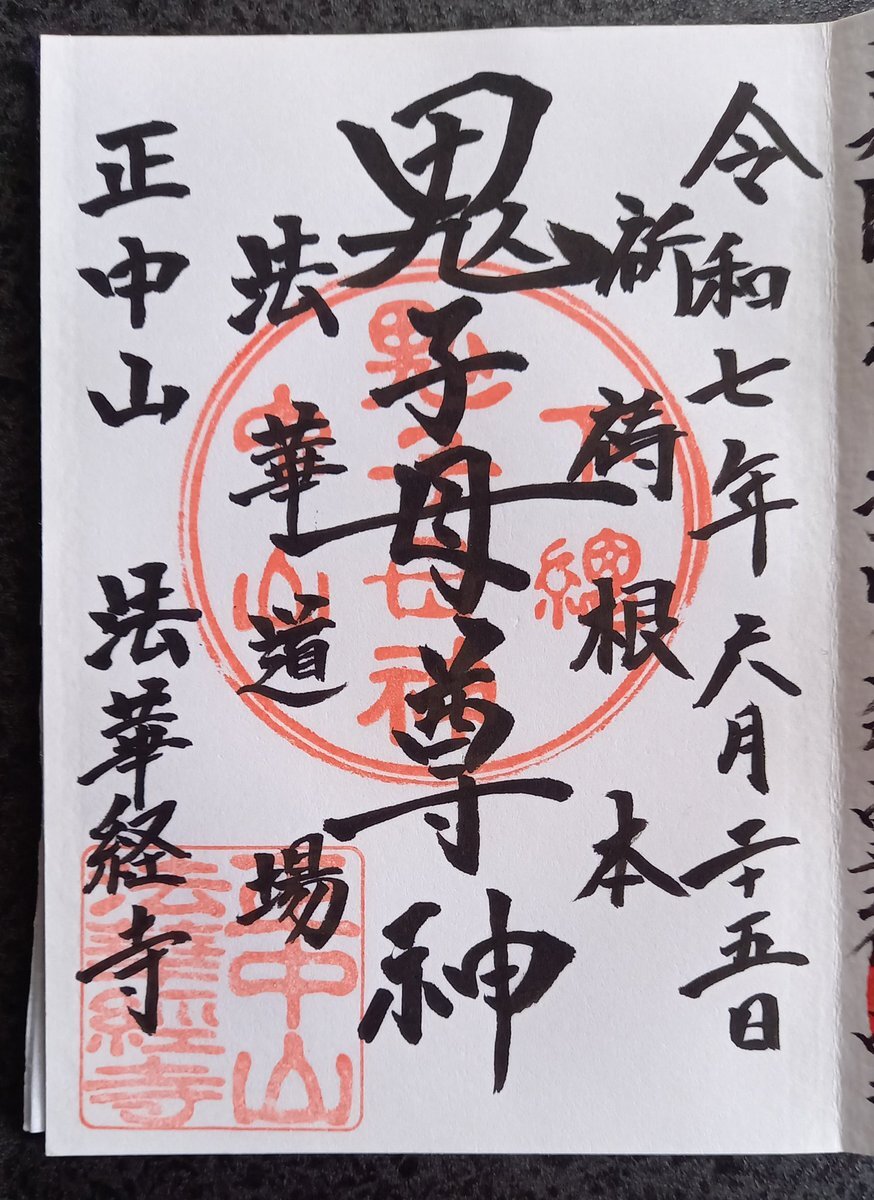 令和七年六月二十五日
祈祷根本
鬼子母尊神
法華道場
正中山 法華経寺
下總
鬼子母神
中山
正中山
法華經寺